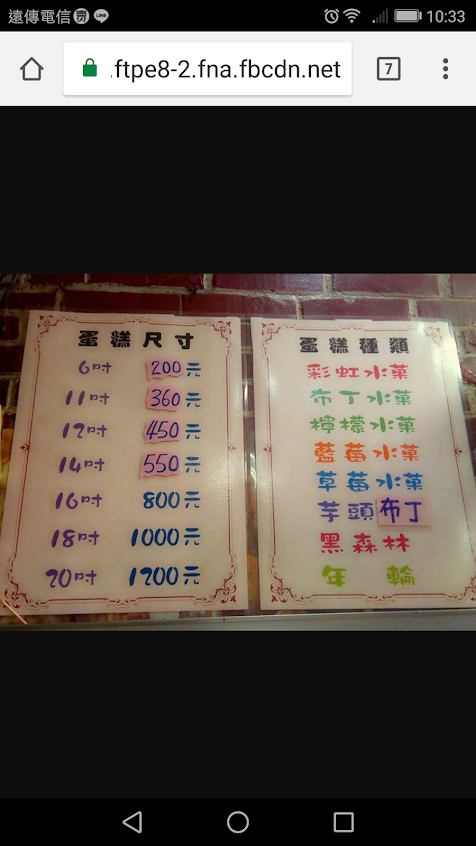 遠傳電信 賣 LINE 10:33
.ftpe8-2.fna.fbcdn.net 7
蛋糕尺寸
6吋 200元
11吋 360元
12吋 450元
14吋 550元
16吋 800元
18吋 1000元
20吋 1200元
蛋糕種類
彩虹水菓
布丁水菓
檸檬水菓
藍莓水菓
草莓水菓
芋頭布丁
黑森林
年輪